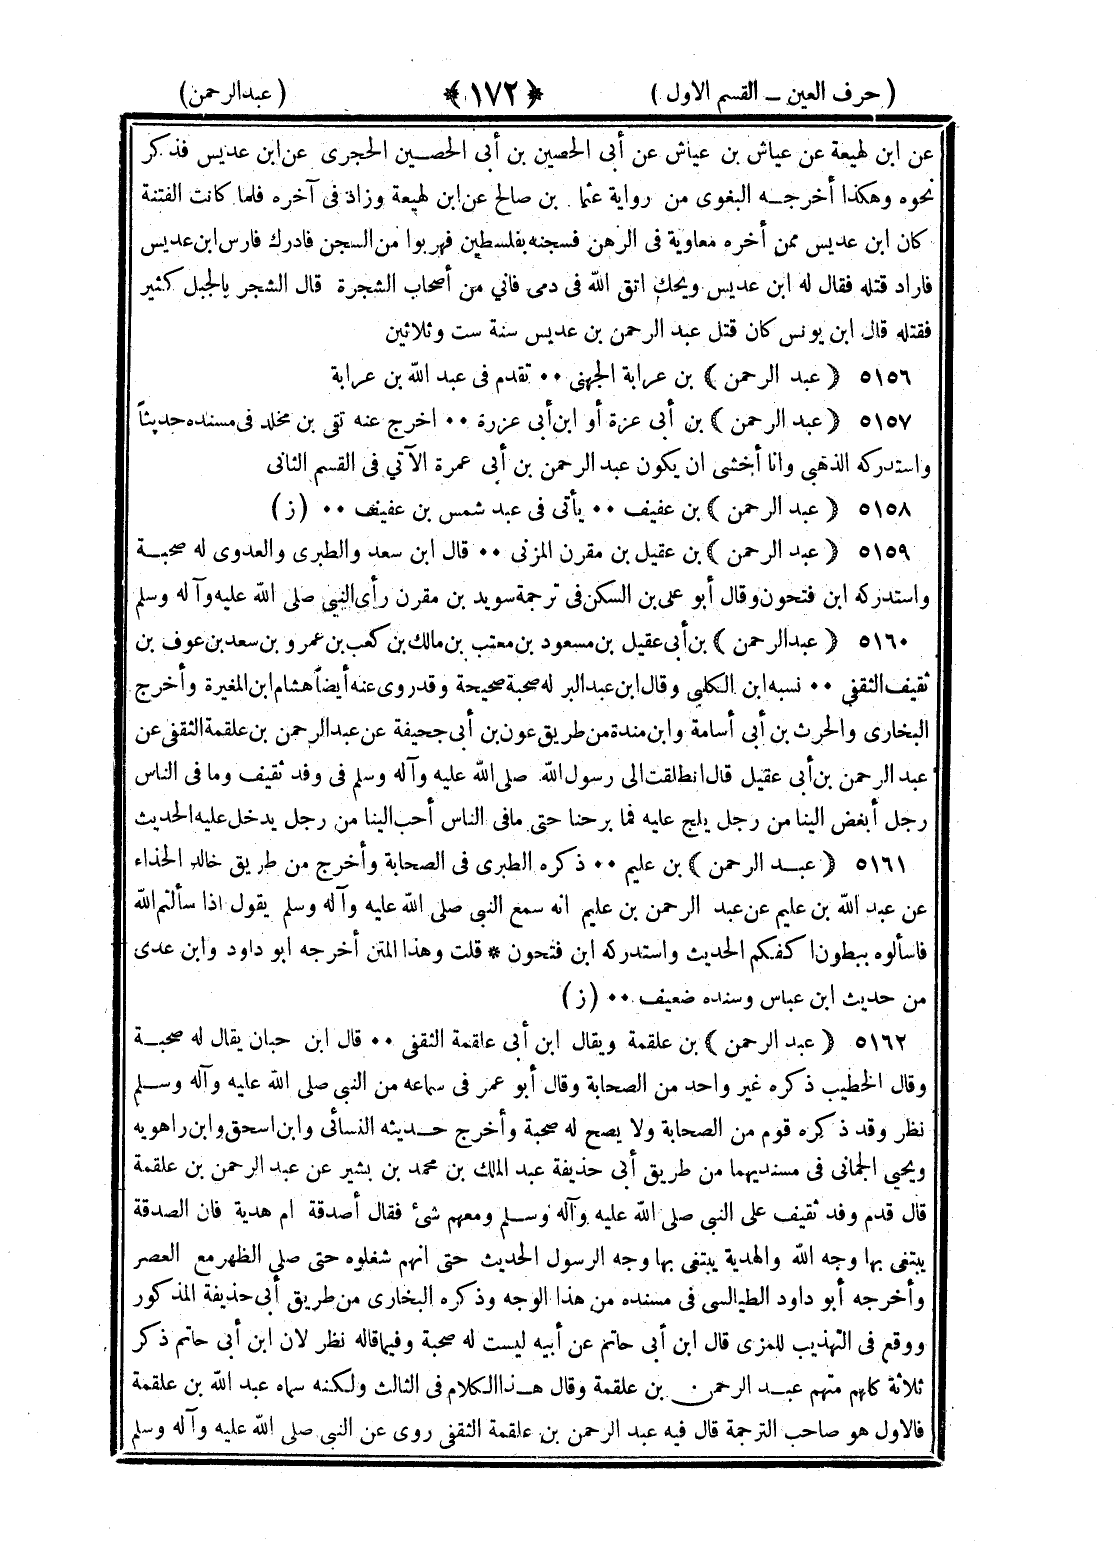 ( حرف العين ــ القسم الاول )
﴿ ١٧٢ ﴾
( عبدالرحمن )
عن ابن لهيعة عن عياش بن عياش عن أبى الحصين بن أبى الحصــين الحجرى عن ابن عديس فذكر
نحوه وهكذا أخرجــه البغوى من رواية عثما بن صالح عن ابن لهيعة وزاد فى آخره فلما كانت الفتنة
كان ابن عديس ممن أخره معاوية فى الرهن فسجنه بفلسطين فهربوا من السجن فادرك فارس ابن عديس
فاراد قتله فقال له ابن عديس ويحك اتق الله فى دمى فاني من أصحاب الشجرة قال الشجر بالجبل كثير
فقتله قال ابن يونس كان قتل عبد الرحمن بن عديس سنة ست وثلاثين
٥١٥٦ ﴿ عبد الرحمن ﴾ بن عرابة الجهنى ٠٠ تقدم فى عبد الله بن عرابة
٥١٥٧ ﴿ عبد الرحمن ﴾ بن أبى عزة أو ابن أبى عزرة ٠٠ اخرج عنه تقى بن مخلد فى مسنده حديثاً
واستدركه الذهبى وانا أخشى ان يكون عبد الرحمن بن أبي عمرة الآتي فى القسم الثانى
٥١٥٨ ﴿ عبد الرحمن ﴾ بن عفيف ٠٠ يأتى فى عبد شمس بن عفيف ٠٠ (ز)
٥١٥٩ ﴿ عبد الرحمن ﴾ بن عقيل بن مقرن المزنى ٠٠ قال ابن سعد والطبرى والعدوى له صحبــة
واستدركه ابن فتحون وقال أبو على بن السكن فى ترجمة سويد بن مقرن رأى النبي صلى الله عليه وآله وسلم
٥١٦٠ ﴿ عبدالرحمن ﴾ بن أبى عقيل بن مسعود بن معتب بن مالك بن كعب بن عمرو بن سعد بن عوف بن
ثقيف الثقفى ٠٠ نسبه ابن الكلبى وقال ابن عبد البر له صحبة صحيحة وقد روى عنه أيضاً هشام ابن المغيرة وأخرج
البخارى والحرث بن أبي أسامة وابن مندة من طريق عون بن أبى جحيفة عن عبد الرحمن بن علقمة الثقفى عن
عبد الرحمن بن أبى عقيل قال انطلقت الى رسول الله صلى الله عليه وآله وسلم فى وفد ثقيف وما فى الناس
رجل أبغض الينا من رجل يلج عليه فما برحنا حتى مافى الناس أحب الينا من رجل يدخل عليه الحديث
٥١٦١ ﴿ عبــد الرحمن ﴾ بن عليم ٠٠ ذكره الطبرى فى الصحابة وأخرج من طريق خالد الحذاء
عن عبد الله بن عليم عن عبد الرحمن بن عليم انه سمع النبى صلى الله عليه وآله وسلم يقول اذا سألتم الله
فاسألوه ببطون اكفكم الحديث واستدركه ابن فتحون * قلت وهذا المتن أخرجه ابو داود وابن عدى
من حديث ابن عباس وسنده ضعيف ٠٠ (ز)
٥١٦٢ ﴿ عبد الرحمن ﴾ بن علقمة ويقال ابن أبى علقمة الثقفى ٠٠ قال ابن حبان يقال له صحبــة
وقال الخطيب ذكره غير واحد من الصحابة وقال أبو عمر فى سماعه من النبي صلى الله عليه وآله وســلم
نظر وقد ذكره قوم من الصحابة ولا يصح له صحبة وأخرج حــديثه النسائى وابن اسحق وابن راهويه
ويحيي الحمانى فى مسنديهما من طريق أبى حذيفة عبد الملك بن محمد بن بشير عن عبد الرحمن بن علقمة
قال قدم وفد ثقيف على النبى صلى الله عليه وآله وســلم ومعهم شئ فقال أصدقة ام هدية فان الصدقة
يبتغى بها وجه الله والهدية يبتغى بها وجه الرسول الحديث حتى انهم شغلوه حتى صلى الظهر مع العصر
وأخرجه أبو داود الطيالسى فى مسنده من هذا الوجه وذكره البخارى من طريق أبى حذيفة المذكور
ووقع فى التهذيب للمزى قال ابن أبى حاتم عن أبيه ليست له صحبة وفيما قاله نظر لان ابن أبى حاتم ذكر
ثلاثة كلهم منهم عبــد الرحمن بن علقمة وقال هــذا الكلام فى الثالث ولكنه سماه عبد الله بن علقمة
فالاول هو صاحب الترجمة قال فيه عبد الرحمن بن علقمة الثقفى روى عن النبى صلى الله عليه وآله وسلم